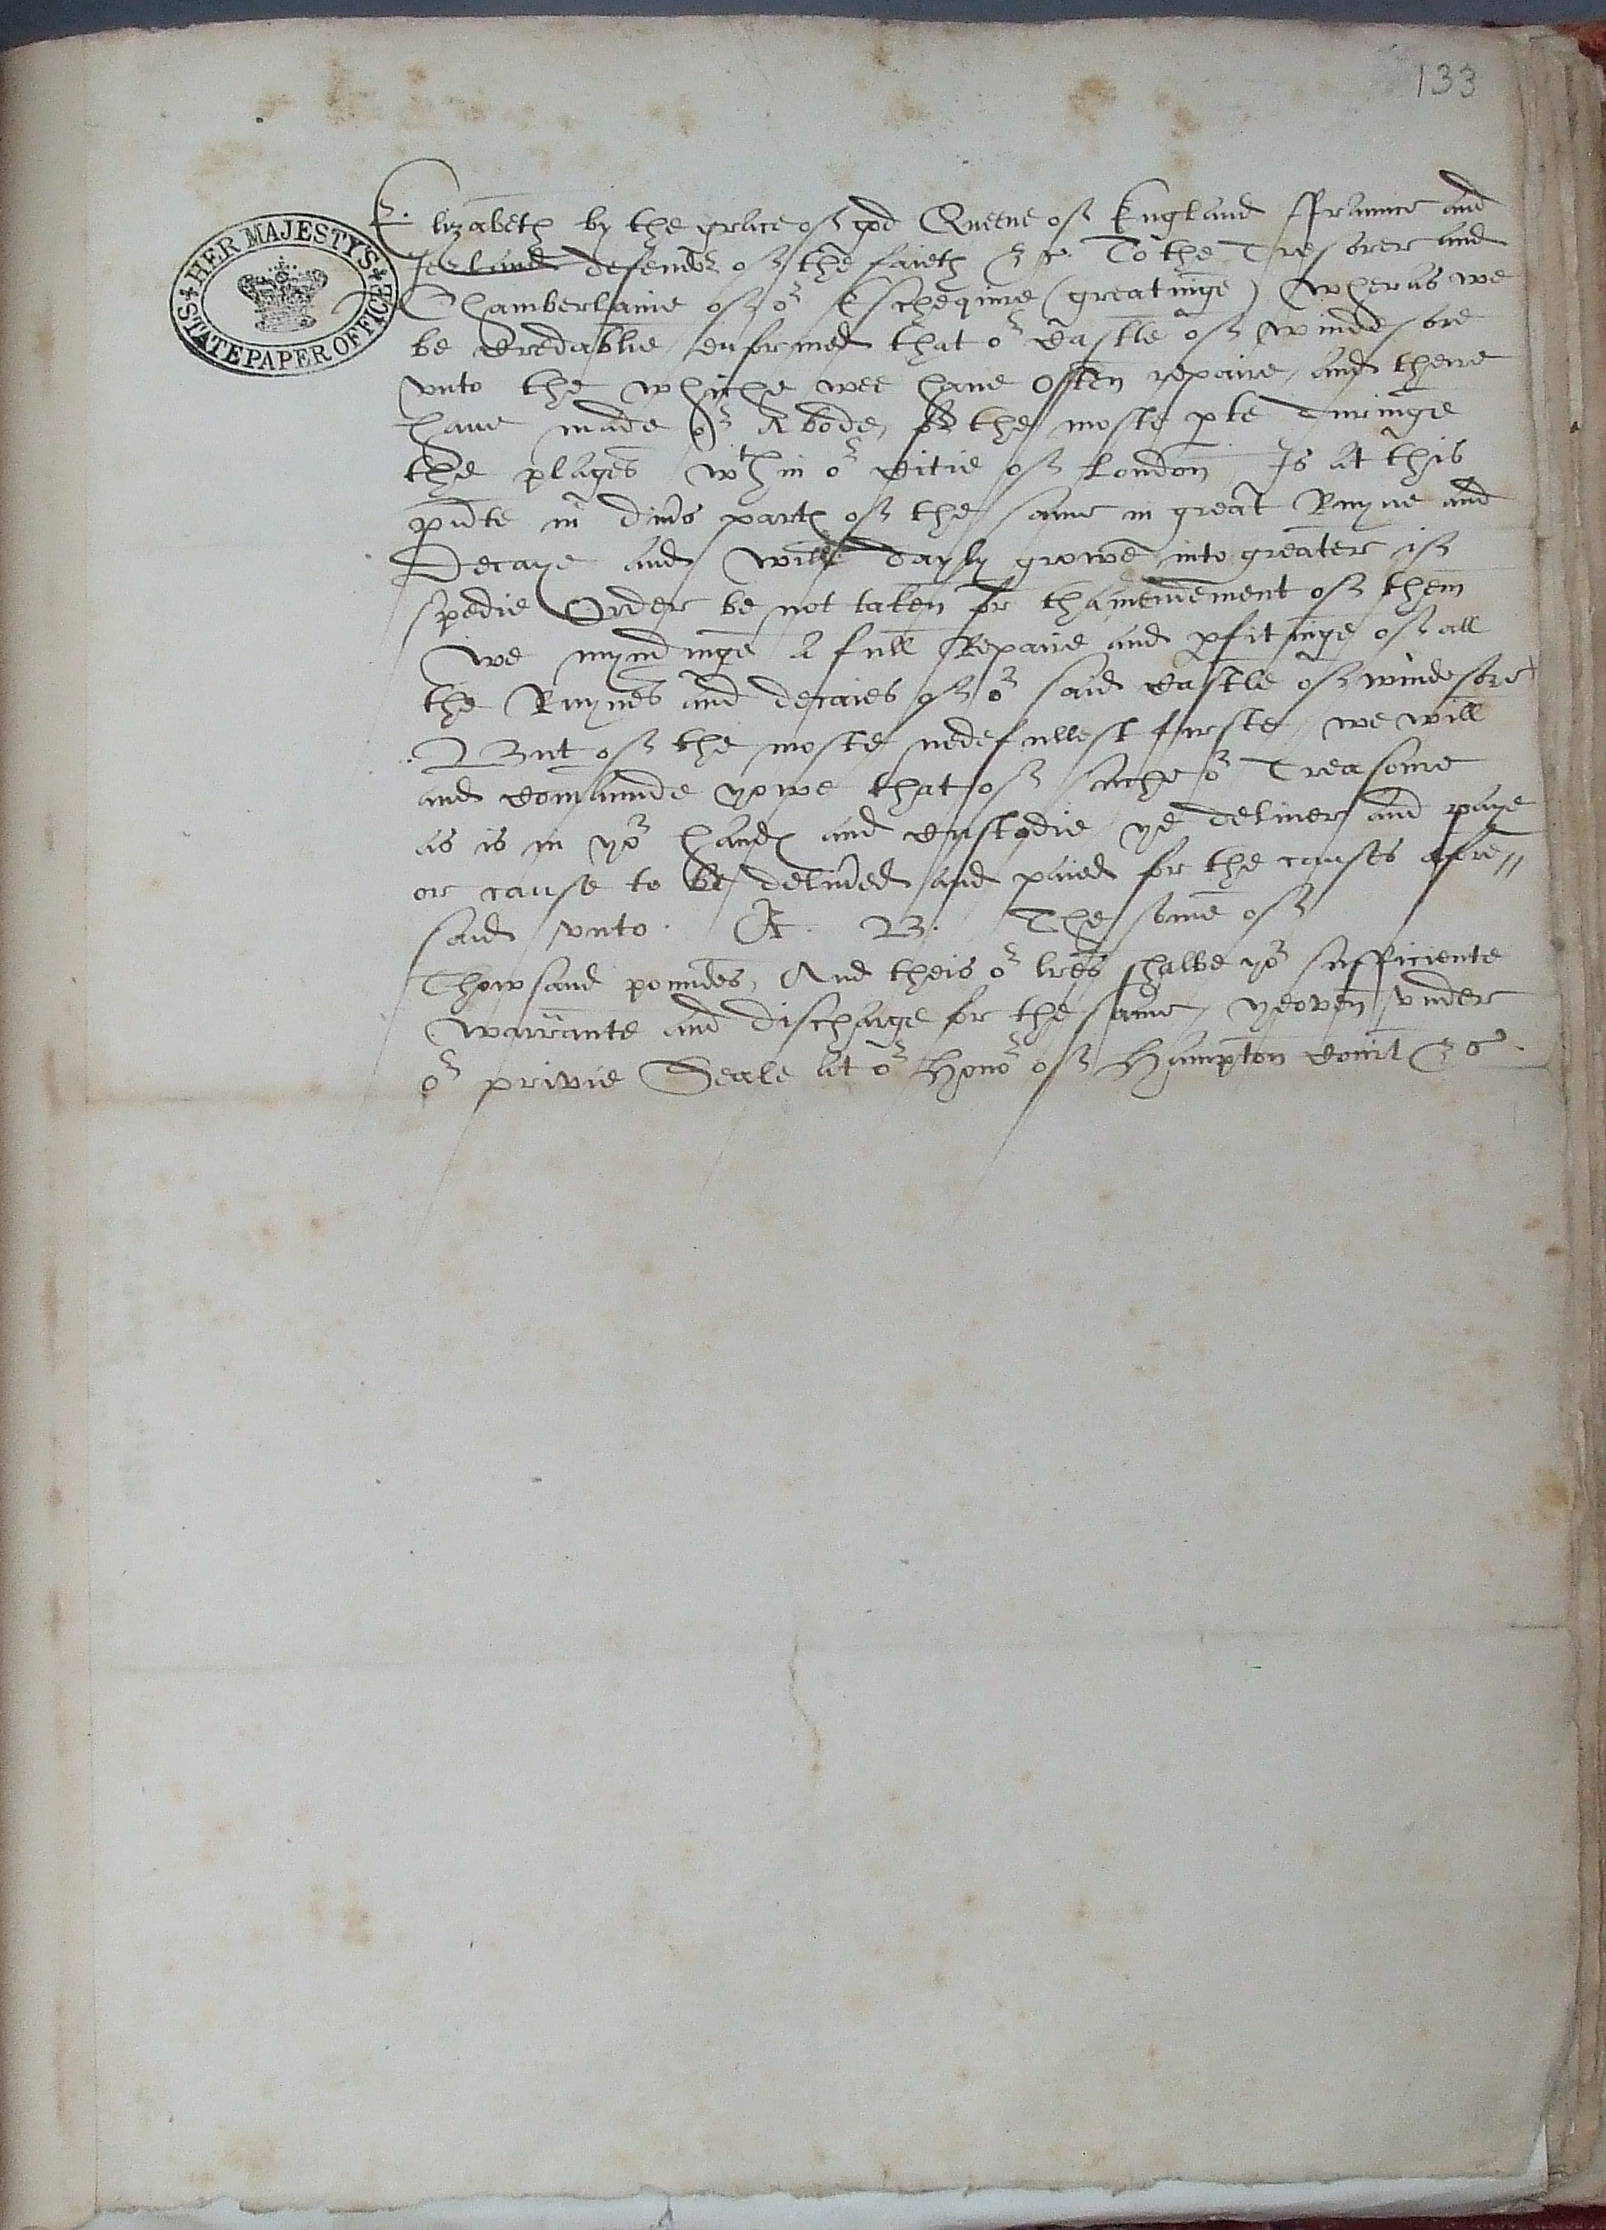 133
HER MAJESTYS STATE PAPER OFFICE
Elizabeth by the grace of god Queene of England ffraunce and
Ireland defendor of the faieth &c To the Tresorer and
Chamberlaine of or Eschequire (greatinge) Wheras we
be credablie enformed that or Castle of windesore
vnto the whiche wee haue Often repaire, and there
haue made or Abode, for the moste pte duringe
the plages wthin or Citie of London Is at this
pnte in diuers partes of the same in great Ruyne and
Decaye and will dayly growe into greater if
spedie Order be not taken for thamendement of them
We myndinge A full Repaire and pfitinge of all
the Ruynes and decaies of or said Castle of windesore
But of the moste nedefullest furste, we will
and comaunde yowe that of suche or Treasoure
as is in yor handes and Custodie ye deliuer and paye
or cause to be deliued and paied for the causes afore//
said vnto. A. B. The some of
Thowsand poundes, And theis or lres shalbe yor sufficiente
warrante and discharge for the same, yeoven vnder
or privie Seale at or Honor of Hampton Court &c.